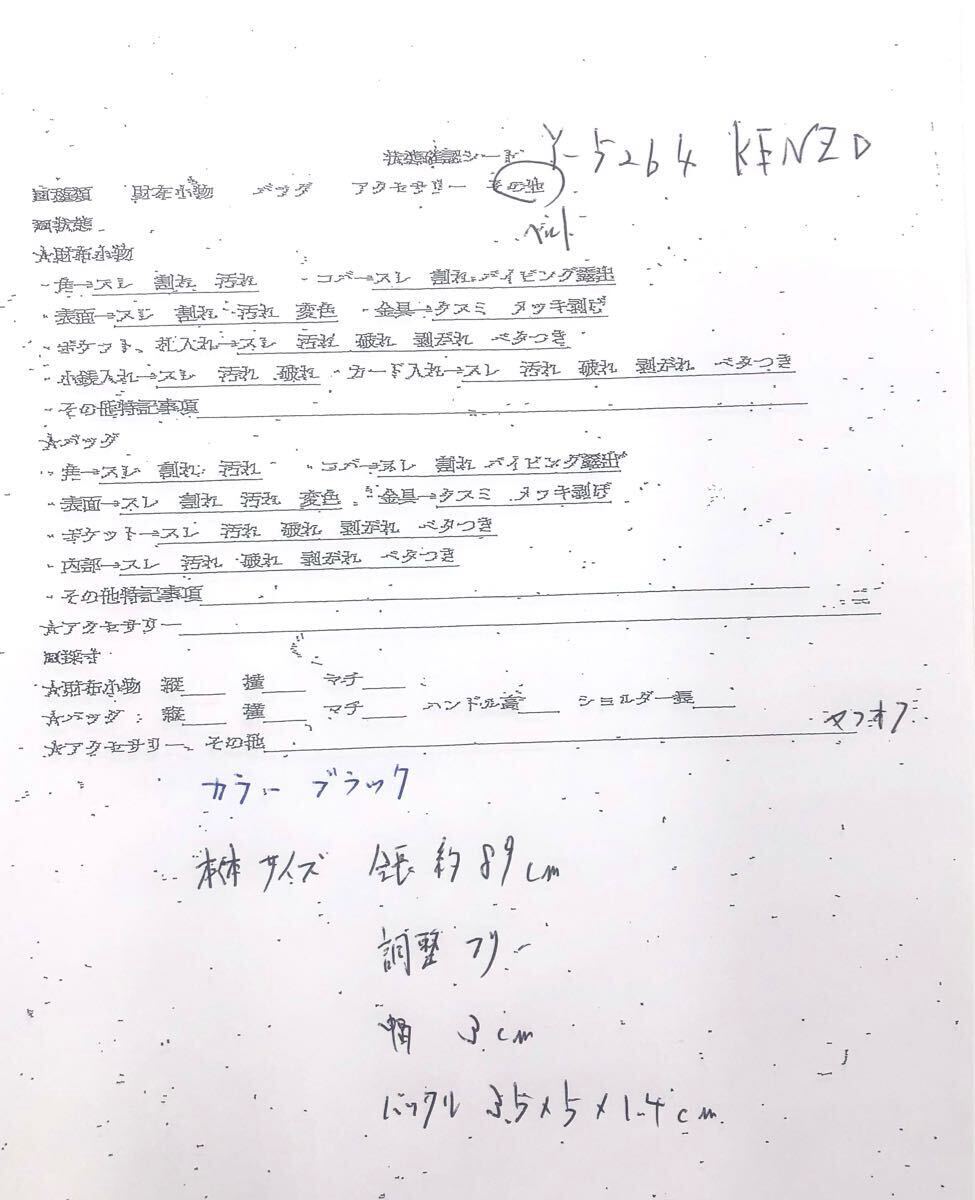 状態確認シート Y-5264 KENZO
回種類 財布小物 バッグ アクセサリー その他
回状態 ベルト
★財布小物
・角→スレ 割れ 汚れ ・コバ→スレ 割れ パイピング露出
・表面→スレ 割れ 汚れ 変色 ・金具→クスミ メッキ剥げ
・ポケット、札入れ→スレ 汚れ 破れ 剥がれ ベタつき
・小銭入れ→スレ 汚れ 破れ ・カード入れ→スレ 汚れ 破れ 剥がれ ベタつき
・その他特記事項
★バッグ
・角→スレ 割れ 汚れ ・コバ→スレ 割れ パイピング露出
・表面→スレ 割れ 汚れ 変色 ・金具→クスミ メッキ剥げ
・ポケット→スレ 汚れ 破れ 剥がれ ベタつき
・内部→スレ 汚れ 破れ 剥がれ ベタつき
・その他特記事項
★アクセサリー
回採寸
★財布小物 縦 横 マチ
★バッグ 縦 横 マチ ハンドル高 ショルダー長
★アクセサリー、その他 ヤフオク
カラー ブラック
本体サイズ 全長 約89cm
調整 フリー
幅 3cm
バックル 3.5×5×1.4cm